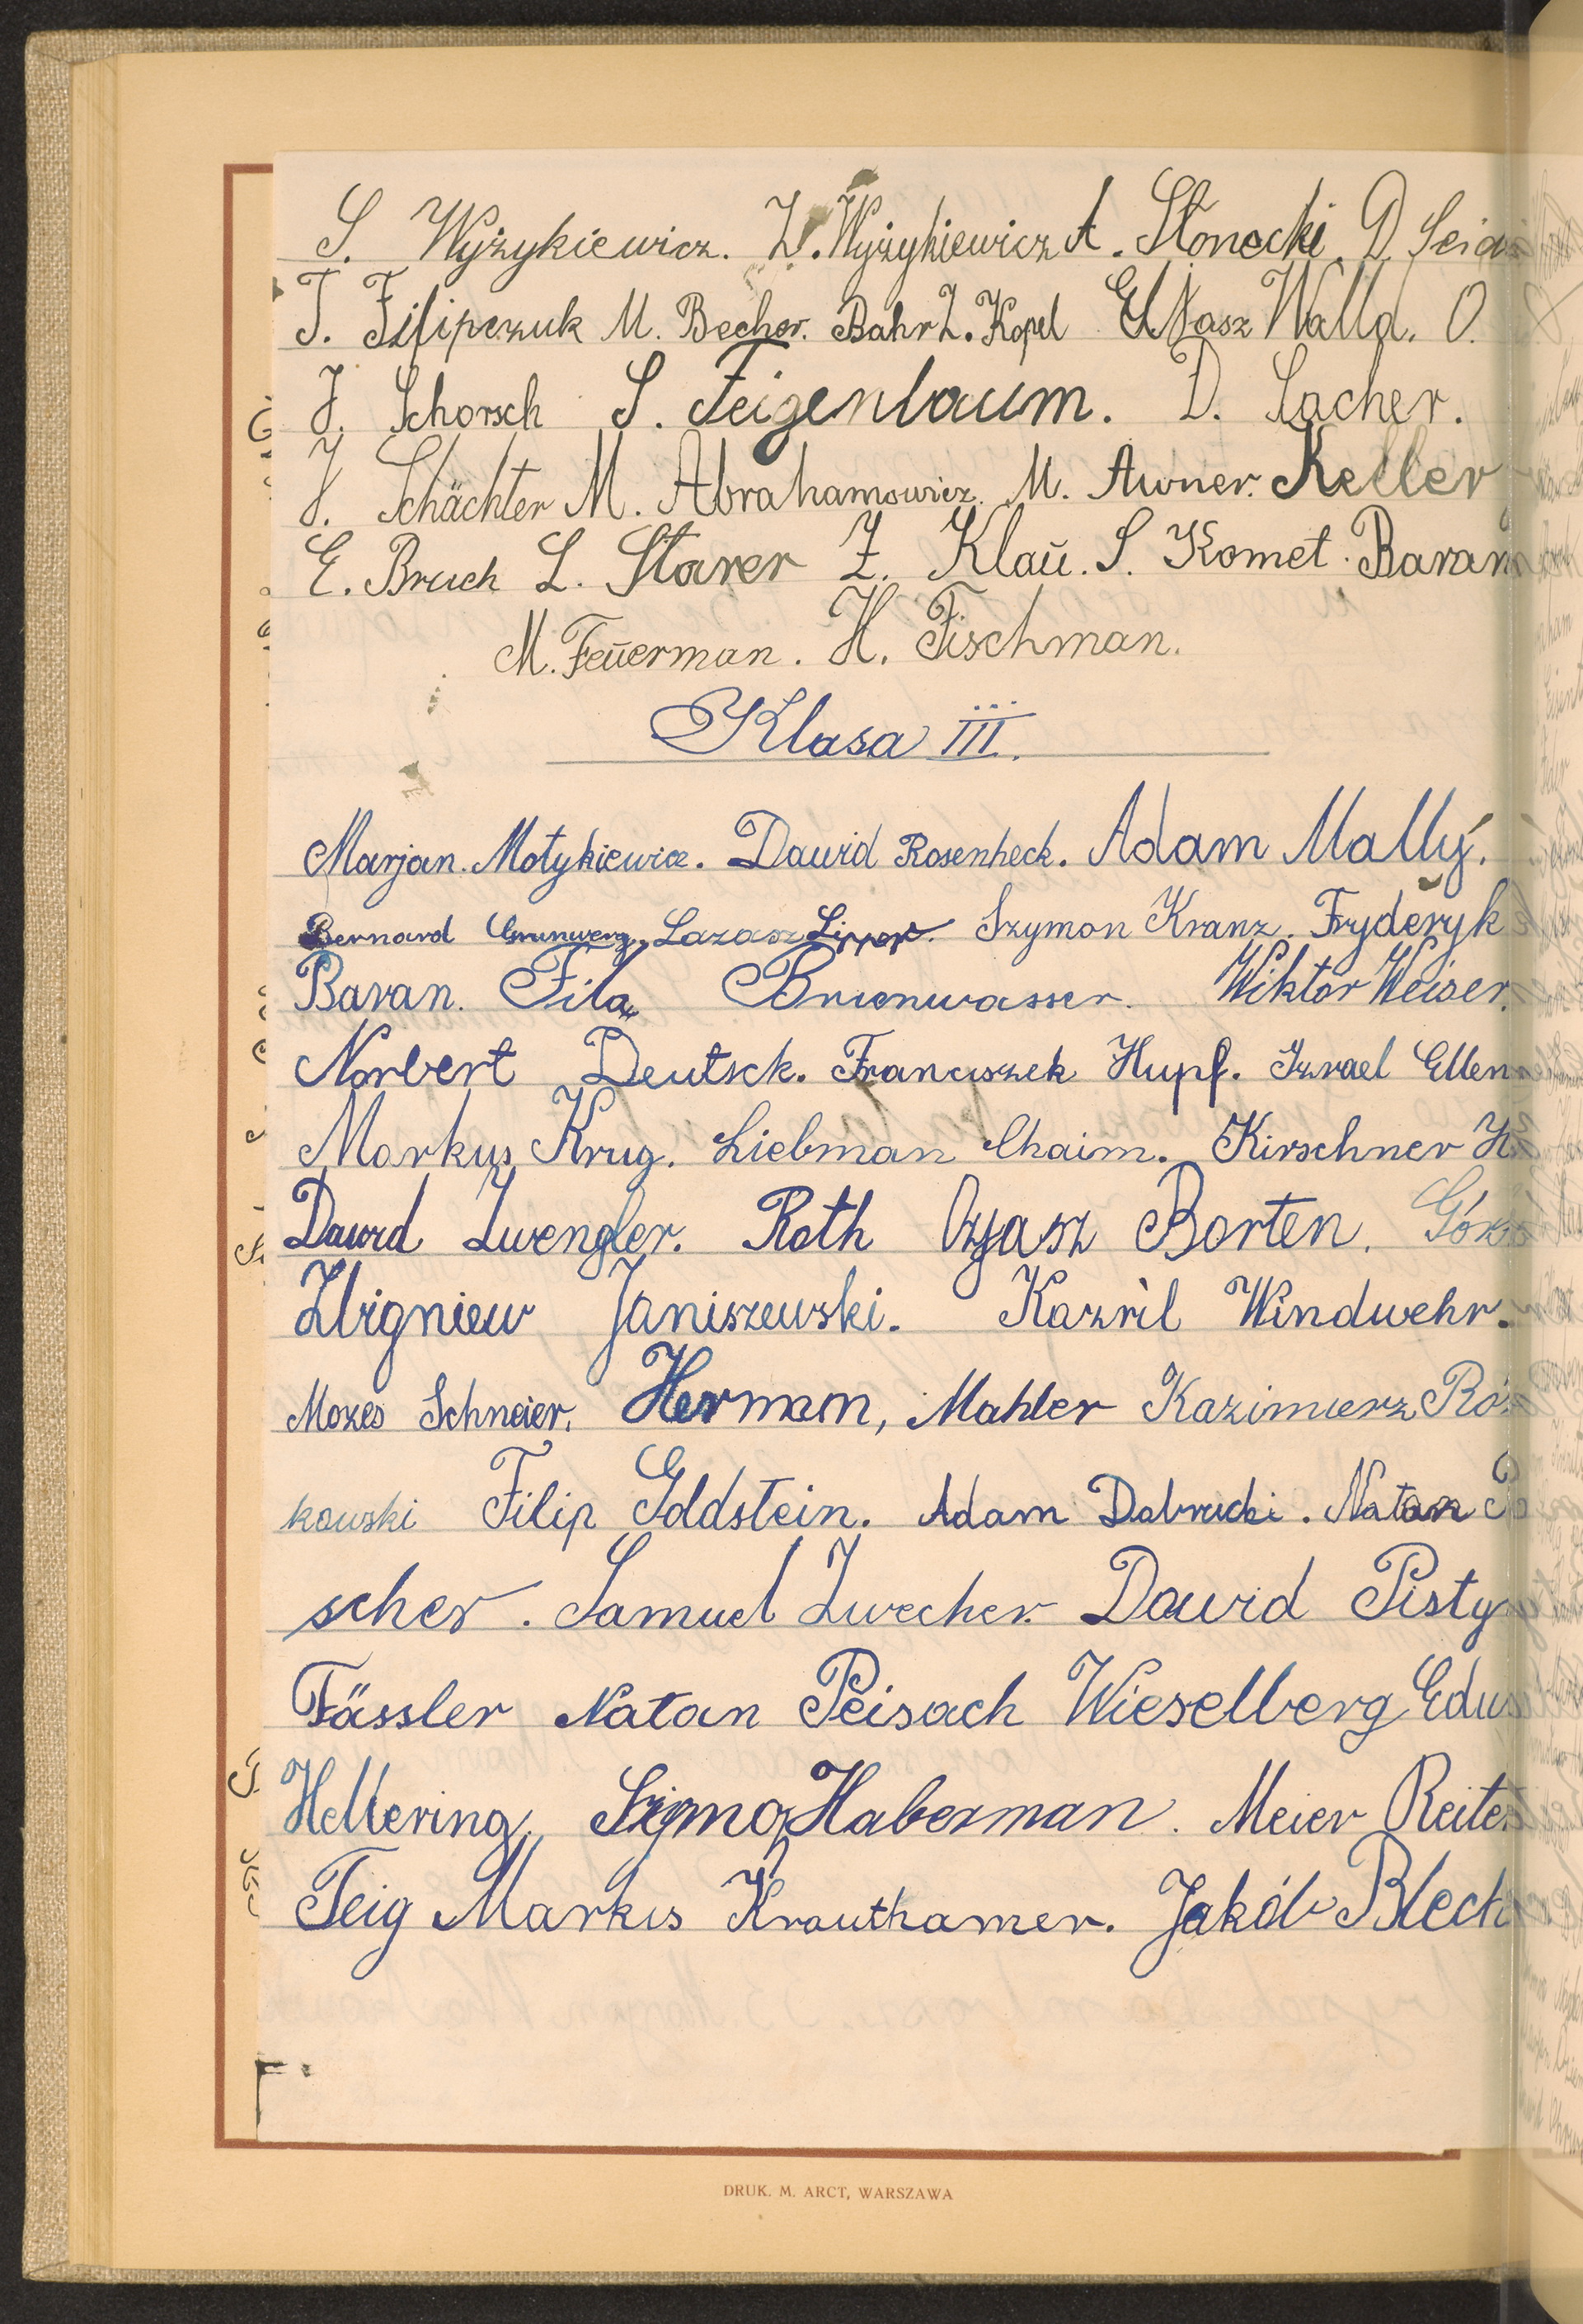 S. Wyżykiewicz. Z. Wyżykiewicz A. Słonecki. D.
T. Filipczuk M. Becher. Bahr Z. Kopel Eljasz Walld. O.
J. Schorsch S. Feigenbaum. D. Lacher.
J. Schächter M. Abrahamowicz. M. Awner. Keller
E. Bruch L. Starer Z. Klaŭ. S. Komet. Baran
M. Feŭerman. H. Fischman.
Klasa III.
Marjan. Motykiewicz. Dawid Rosenheck. Adam Mallý.
Bernard Grunwerg. Lazasz Szymon Kranz. Fryderyk
Baran. Fila Brienwasser. Wiktor Weiser.
Norbert Deutsck. Franciszek Hupf. Izrael Ellen
Markus Krug. Liebman Chaim. Kirschner
Dawid Zwengler. Roth Ozjasz Borten.
Zbigniew Janiszewski. Kazril Windwehr.
Mozes Schneier. Herman, Mahler Kazimierz
kowski Filip Goldstein. Adam Dobrucki. Natan
scher. Samuel Zwecher. Dawid Pisty
Fässler Natan Peisach Wieselberg
Hellering. Haberman. Meier Reiter
Teig Markus Krauthamer. Jakób Blech
DRUK. M. ARCT, WARSZAWA